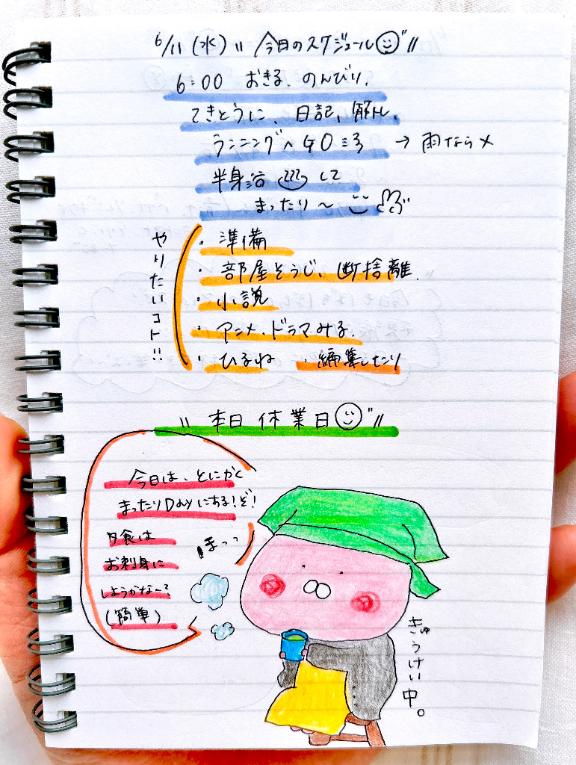 6/11(水)〃今日のスケジュール〃
6:00 おきる。のんびり。
てきとうに、日記、筋トレ、
ランニング〜40ミョ → 雨なら×
半身浴して
まったり〜
やりたいコト!!
・準備
・部屋そうじ、断捨離。
・小説
・アニメ・ドラマみる。
・ひるね ・編集したり
〃本日休業日〃
今日は、とにかく
まったりDayにする!ぞ!
夕食は
お刺身に
しようかな〜?
(簡単)
ほっっ
きゅうけい中。